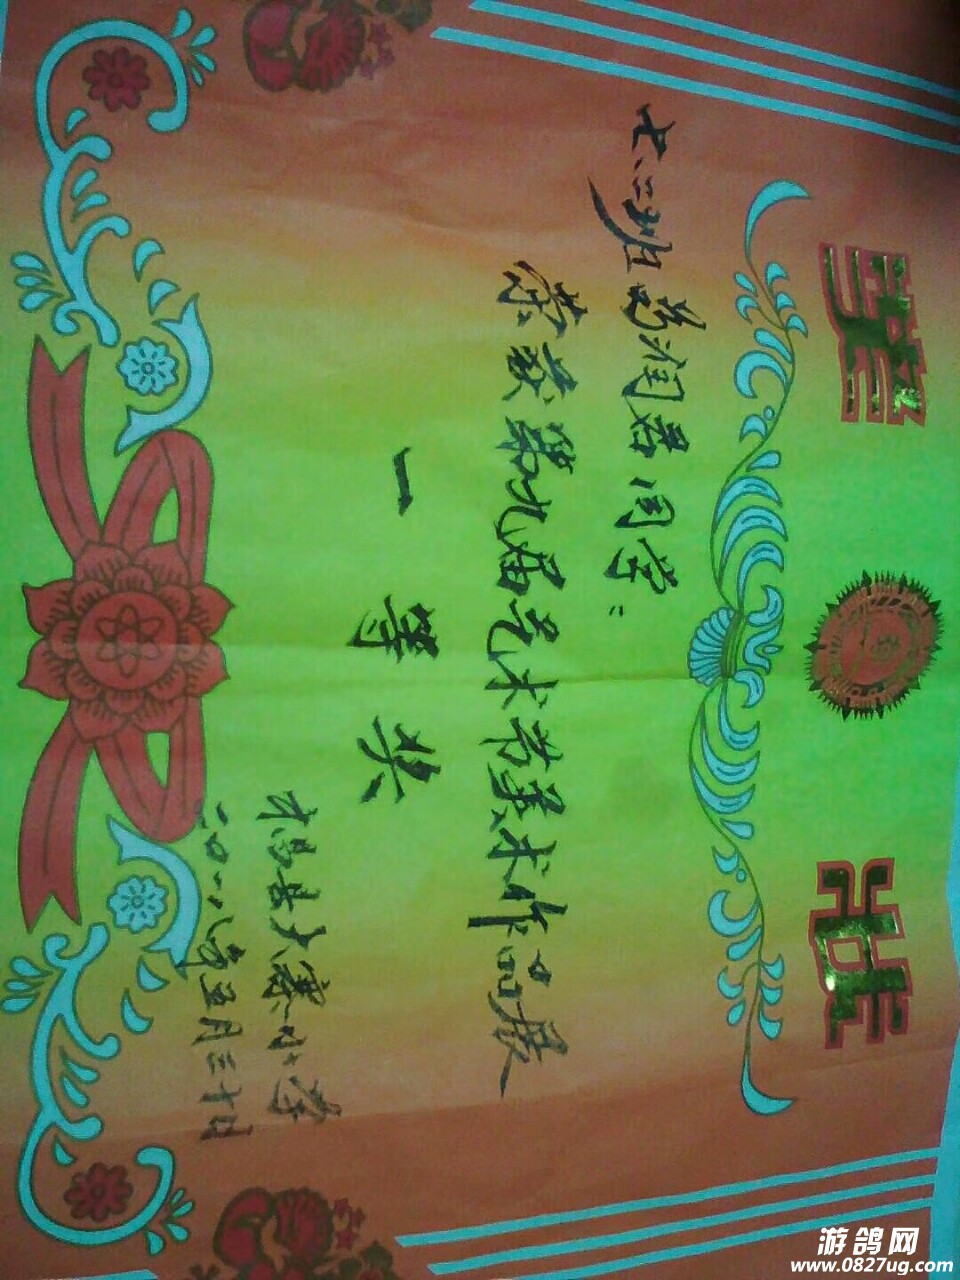 奖状
七.二班 彭润君 同学:
荣获第九届艺术节美术作品展
一等奖
平昌县大寨小学
二〇一八年五月三十日
游鸽网
www.0827ug.com